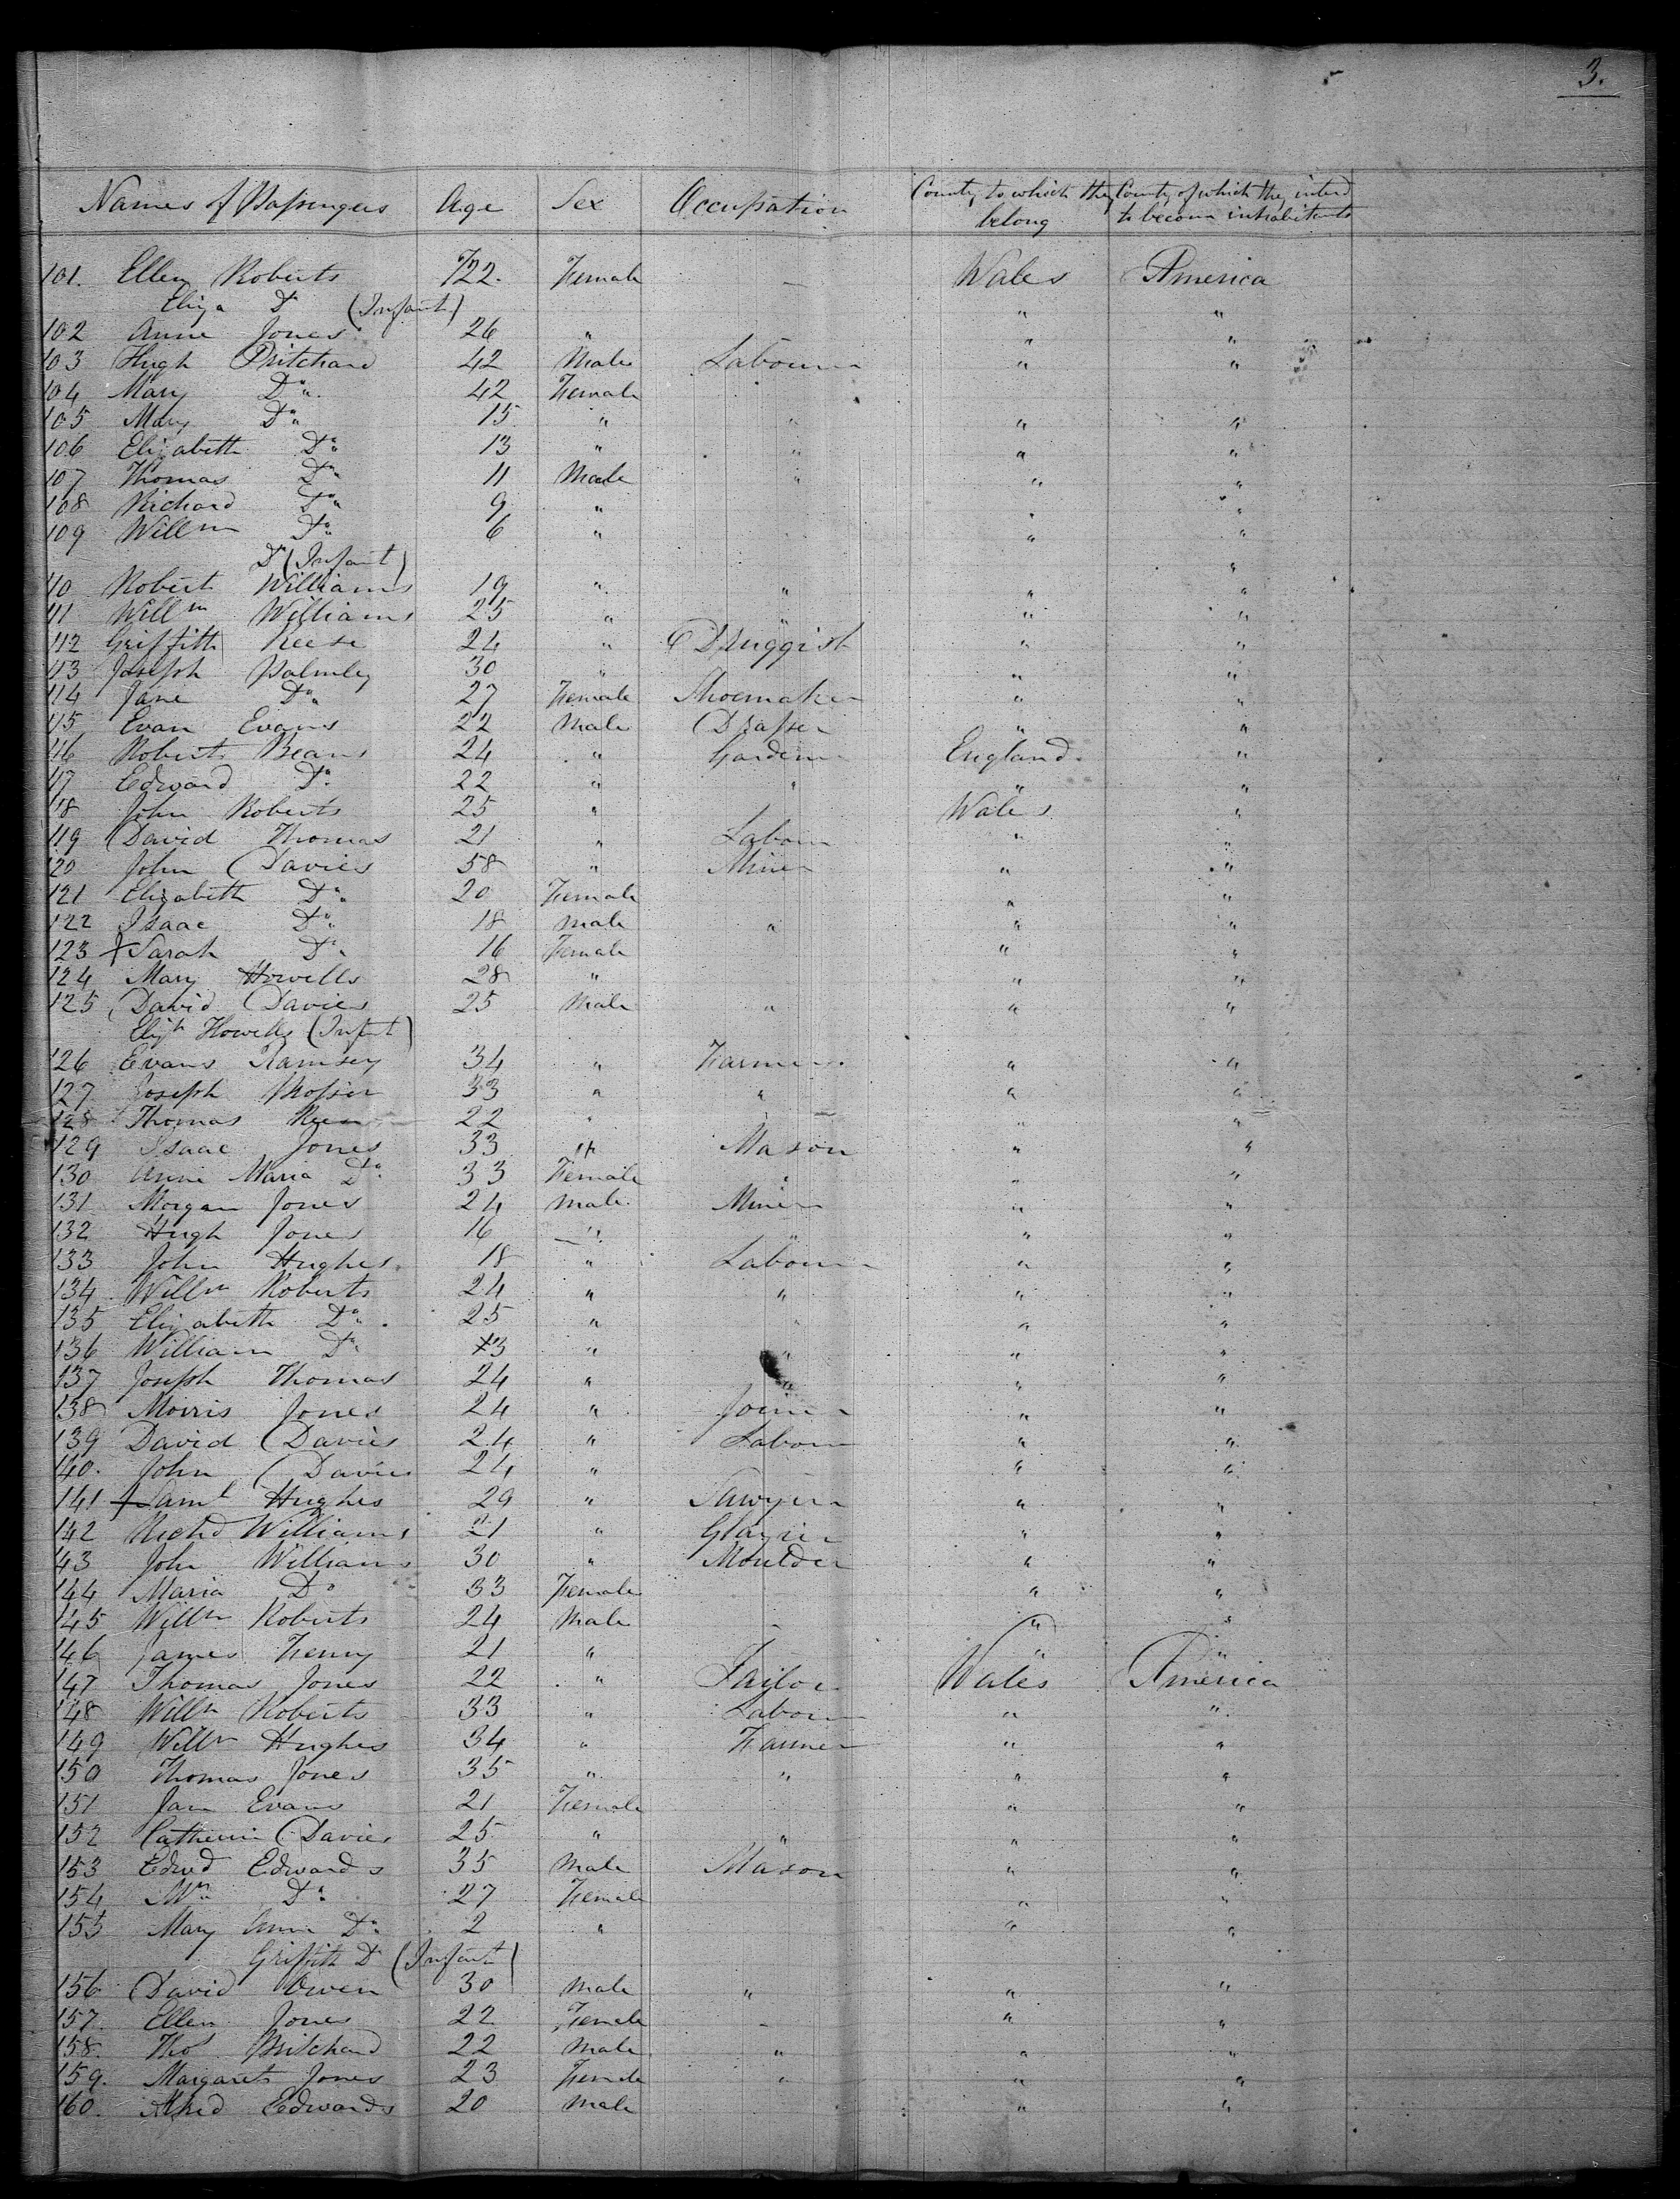 3.
Names of Passengers Age Sex Occupation County to which they belong County of which they intend to become inhabitants
101. Ellen Roberts 22. Female – Wales America
Eliza Do (Infant) " "
102 Anne Jones 26 " " "
103 Hugh Pritchard 42 Male Labourer " "
104 Mary Do 42 Female
105 Mary Do 15 " " " "
106 Elizabeth Do 13 " " " "
107 Thomas Do 11 Male " " "
108 Richard Do 9 " " "
109 Willm Do 6 " " "
Do (Infant) "
110 Robert Williams 19 " " " "
111 Willm Williams 25 " " " "
112 Griffith Reese 24 " Druggist " "
113 Joseph Palmley 30 " " "
114 Jane Do 27 Female Shoemaker " "
115 Evan Evans 22 Male Draper " "
116 Robert Beans 24 " Gardener England "
117 Edward Do 22 " " " "
118 John Roberts 25 " Wales "
119 David Thomas 21 " Labour " "
120 John Davies 58 " Miner " "
121 Elizabeth Do 20 Female " "
122 Isaac Do 18 Male " " "
123 + Sarah Do 16 Female " "
124 Mary Howells 28 " " "
125 David Davies 25 Male " " "
Elizth Howells (Infant)
126 Evans Ramsey 34 " Farmer " "
127 Joseph Prosser 33 " " " "
128 Thomas Rees 22 " " "
129 Isaac Jones 33 " Mason " "
130 Anne Maria Do 33 Female " " "
131 Morgan Jones 24 Male Miner " "
132 Hugh Jones 16 " " " "
133 John Hughes 18 " Labourer " "
134 Willm Roberts 24 " " " "
135 Elizabeth Do 25 " " " "
136 William Do 3 " " " "
137 Joseph Thomas 24 " " " "
138 Morris Jones 24 " Joiner " "
139 David Davies 24 " Labour " "
140. John Davies 24 " " "
141 + Saml Hughes 29 " Sawyer " "
142 Richd Williams 21 " Glazier " "
143 John Williams 30 " Moulder " "
144 Maria Do 33 Female " "
145 Willm Roberts 24 Male – " "
146 James Henry 21 " " "
147 Thomas Jones 22 " Tailor Wales America
148 Willm Roberts 33 " Labour " "
149 Willm Hughes 34 " Farmer " "
150 Thomas Jones 35 " " " "
151 Jane Evans 21 Female " "
152 Catherine Davies 25 " " " "
153 Edwd Edwards 35 Male Mason " "
154 Mrs Do 27 Female " "
155 Mary Anne Do 2 " " "
Griffith Do (Infant)
156 David Owen 30 Male " " "
157. Ellen Jones 22 Female – " "
158. Thos Pritchard 22 Male " " "
159. Margaret Jones 23 Female " " "
160. Alfred Edwards 20 Male " "